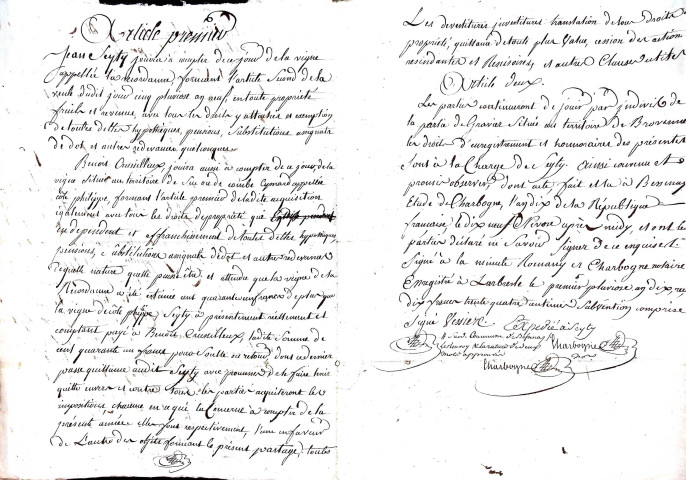 Article premier
Jean Seyty jouira à compter de ce jour de la vigne
appellée la Recordanne formant l'article second de la
vente dudit jour cinq pluviose an neuf, en toute propriété
fruits et revenus, avec tous les droits y attachés et exemption
de toutes dettes hypothèques, pensions, substitutions augmente
de dot et autres redevances quelconques.
Benoit Crusilleux jouira aussi à compter de ce jour de la
vigne située au territoire de ou de combe appellée
côte philippe, formant l'article premier de ladite acquisition
également avec tous les droits de propriété qui en
dependent et affranchissement de toutes dettes hypothèques
pensions, substitutions augmente de dot et autres redevances
de quelle nature quelle puisse être et attendu que la vigne de la
Recordanne a été estimée cent quarante un francs de plus que
la vigne de côte philippe, Seyty a présentement réellement et
comptant payé à Benoit Crusilleux, ladite somme de
cent quarante un francs pour soulte ou retour, dont ce dernier
passe quittance audit Seyty avec promesse de le faire tenir
quitte envers et contre tous. les parties acquitteront les
impositions chacune en ce qui la concerne à compter de la
présente année elles font respectivement, l'une en faveur
de l'autre des effets formant le présent partage, toutes
Les devestitures investitures translation de tous droits de
propriété, quittance de toute plus value, cession des actions
rescindantes et rescisoires, et autres clauses utiles
Article deux.
Les parties continueront de jouir par indivis de
la partie de Gravier située au territoire de
les droits d'enregistrement et honoraires des présentes
sont à la charge de Seyty. Ainsi convenu et
promis observer, dont acte, fait et lu à Bessenay
Etude de Charbogne, l'an dix de la République
française, le dix neuf Nivose après midy, et ont les
parties déclaré ne savoir signer de ce enquises
Signé à la minute et Charbogne notaire
Enregistré à Larbresle le premier pluviose an dix, reçu
dix francs trente quatre centimes subvention comprise
Signé
Expédié à Seyty
Charbogne
Charbogne